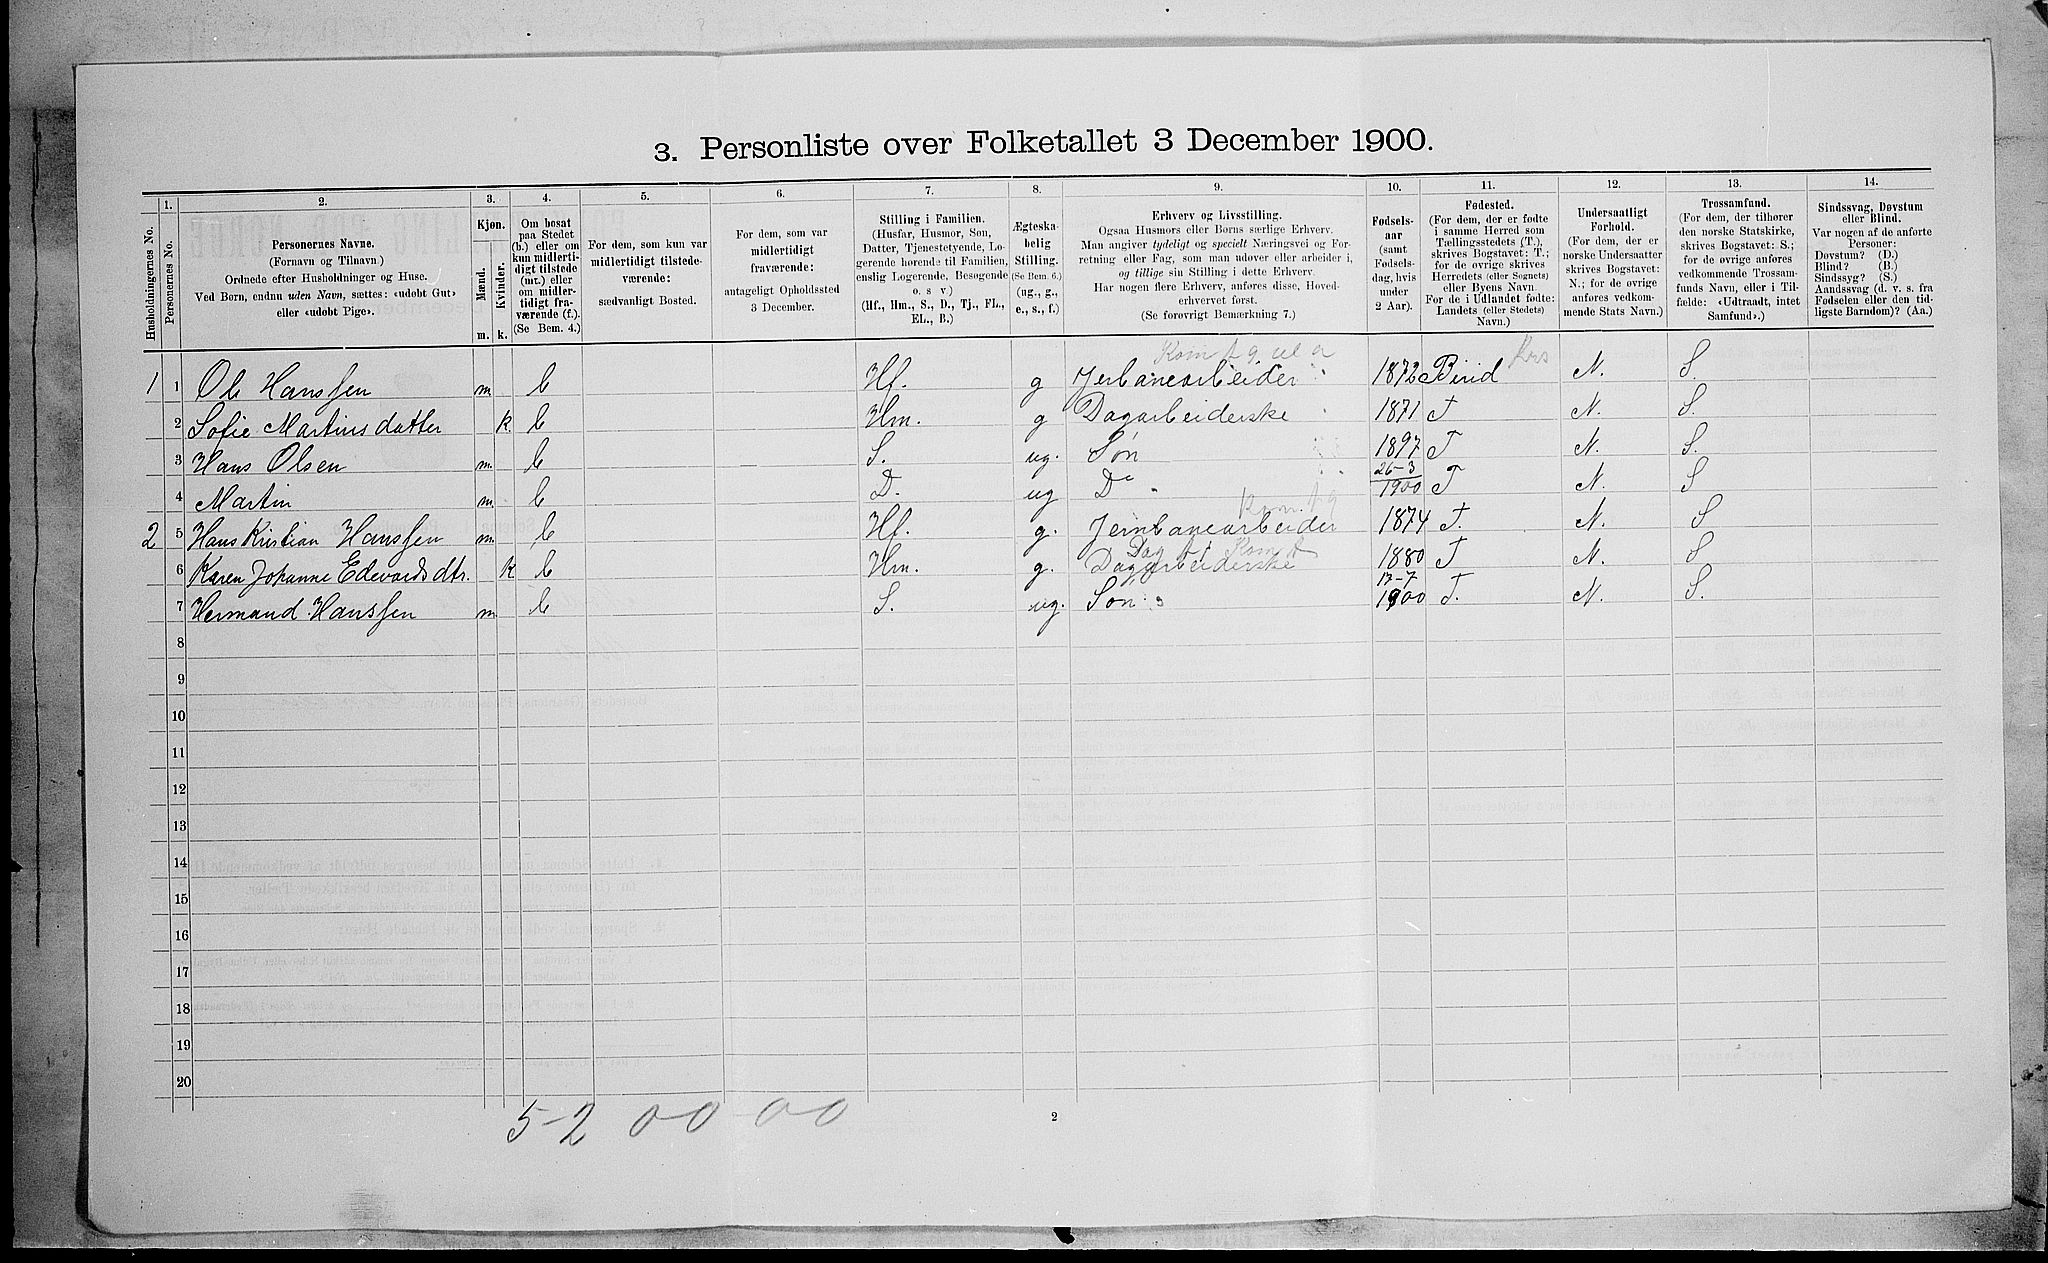 3. Personliste over Folketallet 3 December 1900.
Husholdningernes No.
1.
Personernes No.
2.
Personernes Navne.
(Fornavn og Tilnavn.)
Ordnede efter Husholdninger og Huse.
Ved Børn, endnu uden Navn, sættes: «udøbt Gut»
eller «udøbt Pige».
3.
Kjøn.
Mænd.
Kvinder.
m. k.
4.
Om bosat
paa Stedet
(b.) eller om
kun midlerti-
digt tilstede
(mt.) eller
om midler-
tidigt fra-
værende (f.).
(Se Bem. 4.)
5.
For dem, som kun var
midlertidigt tilstede-
værende:
sædvanligt Bosted.
6.
For dem, som var
midlertidigt
fraværende:
antageligt Opholdssted
3 December.
7.
Stilling i Familien.
(Husfar, Husmor, Søn,
Datter, Tjenestetyende, Lo-
gerende hørende til Familien,
enslig Logerende, Besøgende
o. s. v.)
(Hf., Hm., S., D., Tj., FL.,
EL., B.)
8.
Ægteska-
belig
Stilling.
(Se Bem. 6.)
(ug., g.,
e., s., f.)
9.
Erhverv og Livsstilling.
Ogsaa Husmors eller Børns særlige Erhverv.
Man angiver tydeligt og specielt Næringsvei og For-
retning eller Fag, som man udøver eller arbeider i,
og tillige sin Stilling i dette Erhverv.
Har nogen flere Erhverv, anføres disse, Hoved-
erhvervet først.
(Se forøvrigt Bemærkning 7.)
10.
Fødsels-
aar
(samt
Fødsels-
dag, hvis
under
2 Aar).
11.
Fødested.
(For dem, der er fødte
i samme Herred som
Tællingsstedets (T.),
skrives Bogstavet: T.;
for de øvrige skrives
Herredets (eller Sognets)
eller Byens Navn.
For de i Udlandet fødte:
Landets (eller Stedets)
Navn.)
12.
Undersaatligt
Forhold.
(For dem, der er
norske Undersaatter
skrives Bogstavet:
N.; for de øvrige
anføres vedkom-
mende Stats Navn.)
13.
Trossamfund.
(For dem, der tilhører
den norske Statskirke,
skrives Bogstavet: S.;
for de øvrige anføres
vedkommende Trossam-
funds Navn, eller i Til-
fælde: «Udtraadt, intet
Samfund».)
14.
Sindssvag, Døvstum
eller Blind.
Var nogen af de anførte
Personer:
Døvstum? (D.)
Blind? (B.)
Sindssyg? (S.)
Aandssvag (d. v. s. fra
Fødselen eller den tid-
ligste Barndom)? (Aa.)
1 1 Ole Hanssen m. b Hf. g Jerbanearbeider 1872 Birid N. S.
2 Sofie Martinsdatter k. b Hm. g Dagarbeiderske 1871 T N. S.
3 Hans Olsen m. b S. ug. Søn 1897 T N. S.
26-3
4 Martin m. b D. ug Do 1900 T N. S
2 5 Hans Kristian Hanssen m. b Hf. g. Jernbanearbeider 1874 T. N. S
6 Karen Johanne Edevardsdtr. k b Hm. g. Dagarbeiderske 1880 T N. S
17-7
7 Hermand Hanssen m b S. ug. Søn 1900 T. N. S.
8
9
10
11
12
13
14
15
16
17
18
19
20
5-2 0-0 0-0
2